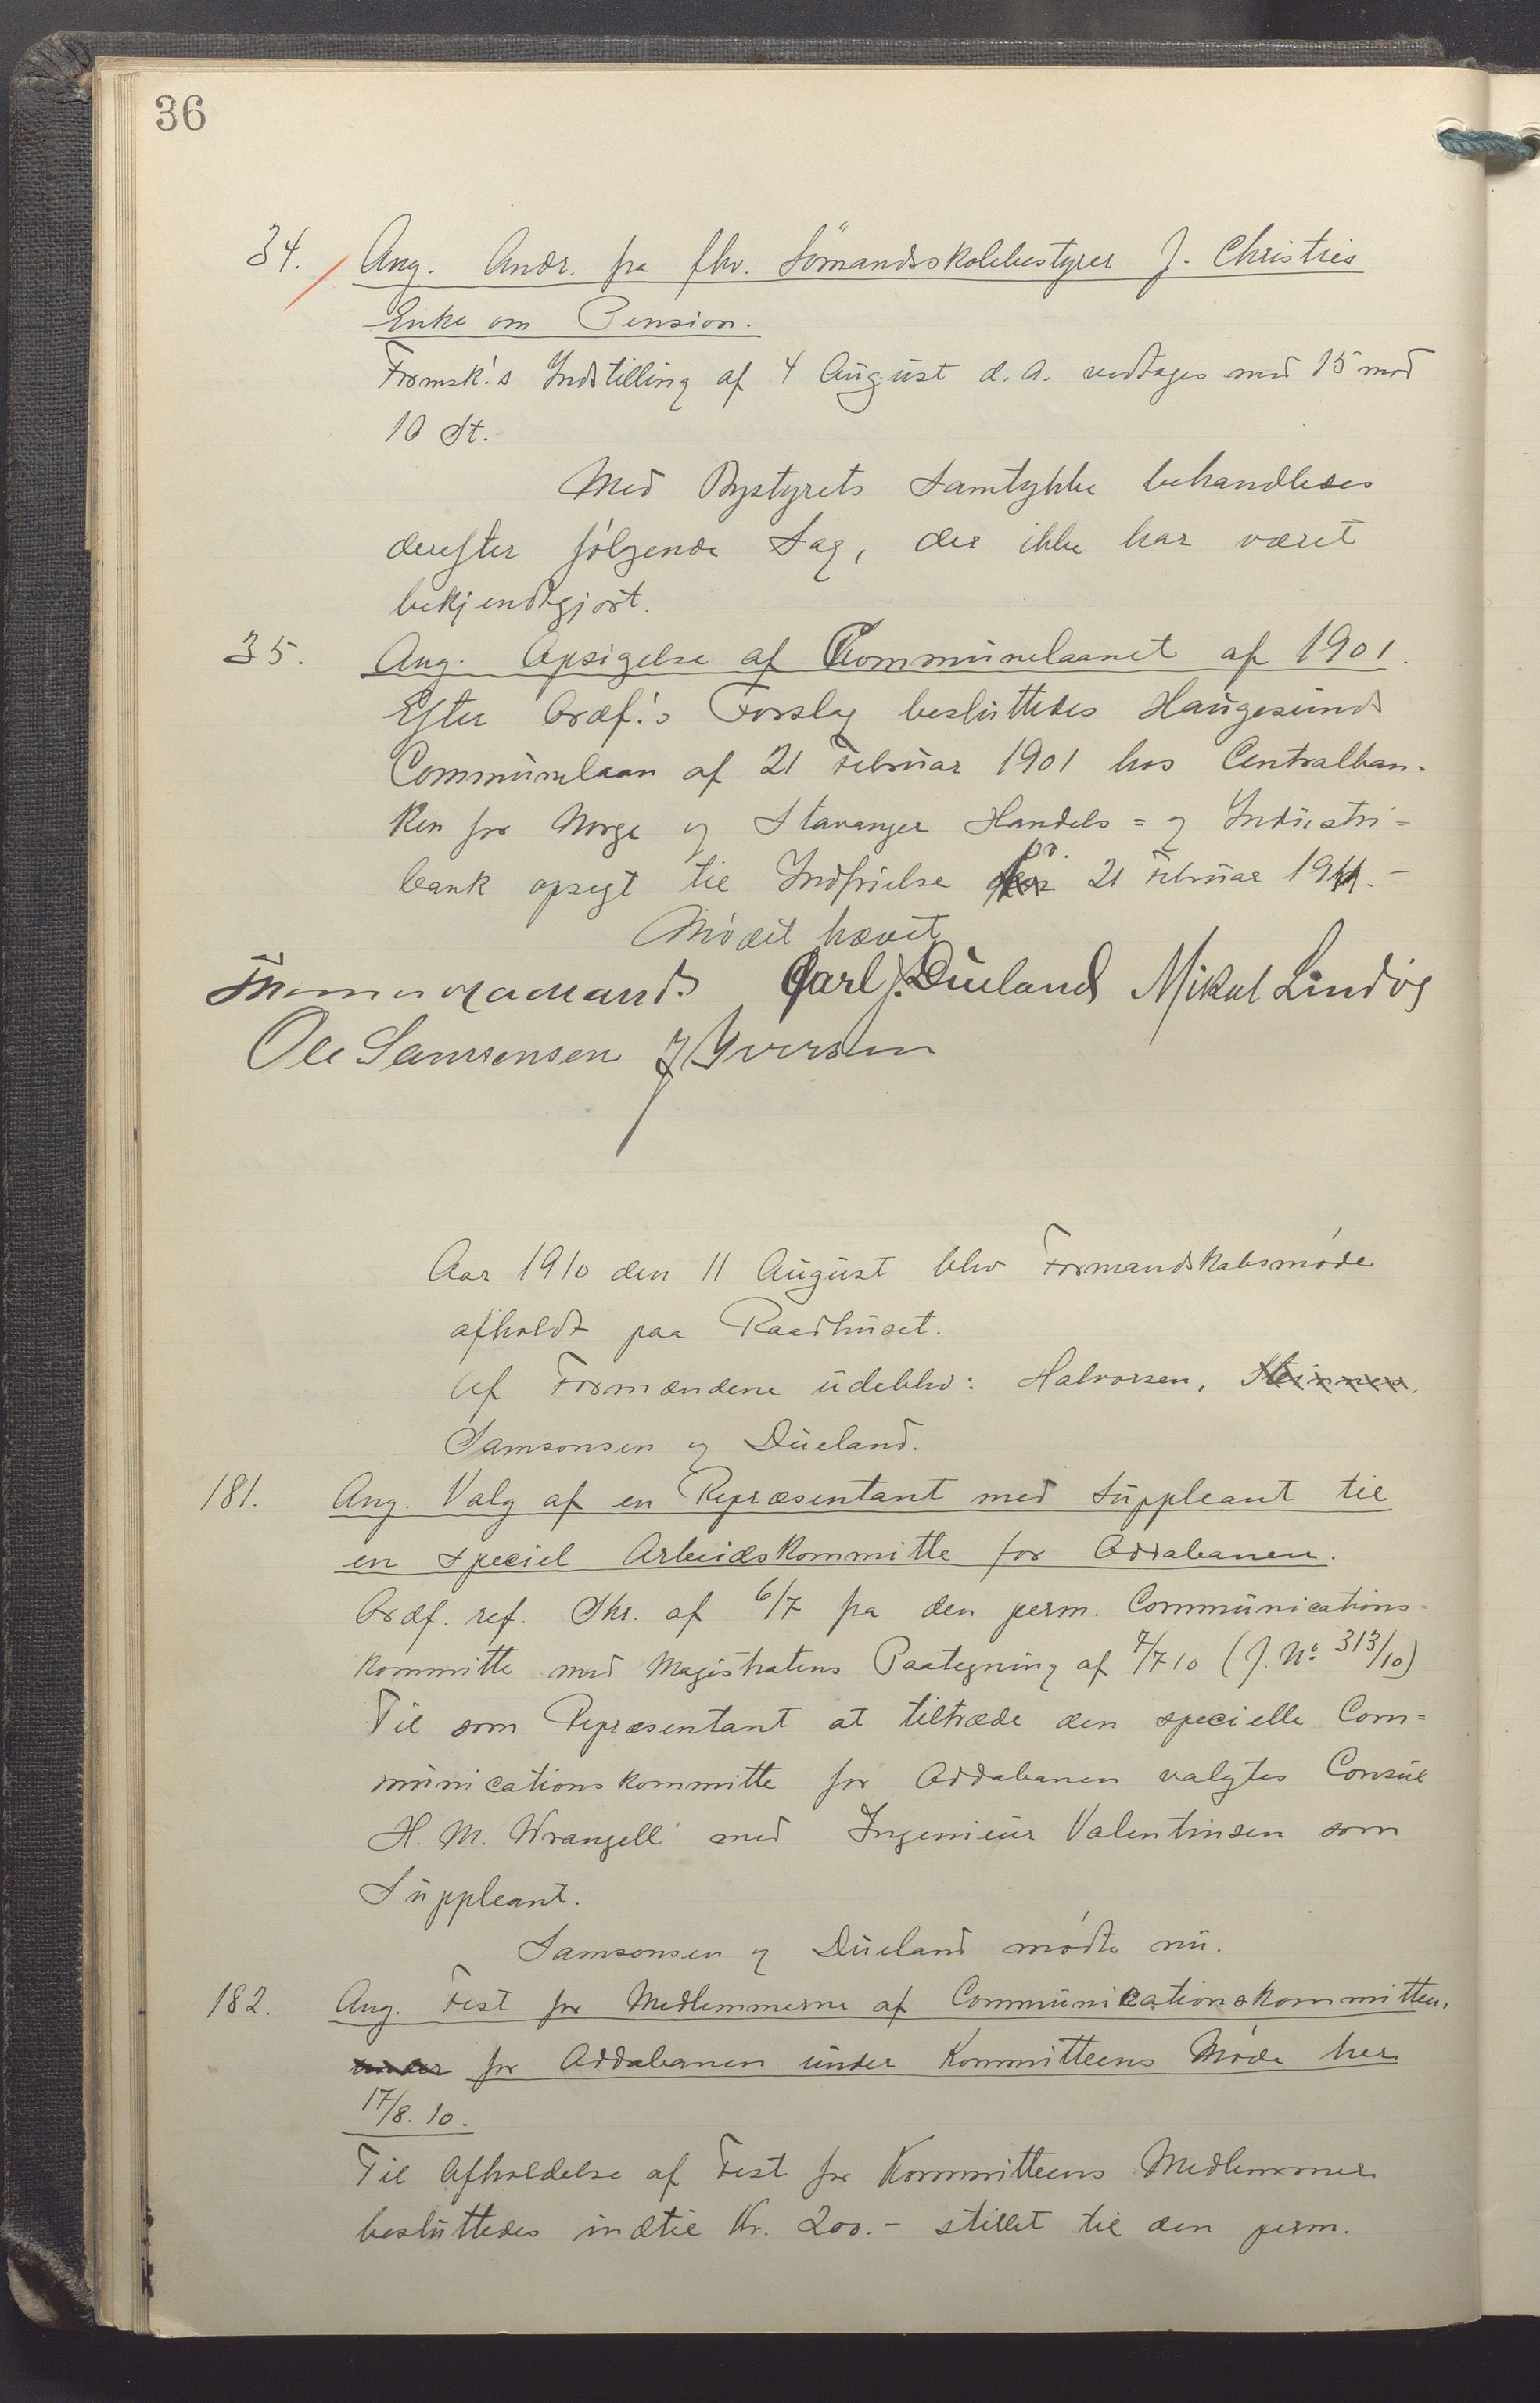 36
34. Ang. Andr. fra fhv. Sømandsskolebestyrer J. Christies
Enke om Pension.
Formsk.'s Indstilling af 4 August d. A. vedtages med 15 mod
10 St.
Med Bystyrets Samtykke behandledes
derefter følgende Sag, der ikke har været
bekjendtgjort.
35. Ang. Opsigelse af Kommunelaanet af 1901.
Efter Ordf.'s Forslag besluttedes Haugesunds
Communelaan af 21 Februar 1901 hos Centralban-
ken for Norge og Stavanger Handels= og Industri=
bank opsagt til Indfrielse pr. 21 Februar 1911.-
Mødet hævet
Carl J. Dueland Mikal Lindøe
Ole Samsonsen J Iversen
Aar 1910 den 11 August blev Formandskabsmøde
afholdt paa Raadhuset.
Af Formændene udeblev: Halvorsen, Steinnes,
Samsonsen og Dueland.
181. Ang. Valg af en Repræsentant med Suppleant til
en speciel Arbeidskommitte for Oddabanen.
Ordf. ref. Skr. af 6/7 fra den perm. Communications
kommitte med Magistratens Paategning af 7/7 10 (J. No 313/10)
Til som Repræsentant at tiltræde den specielle Com=
municationskommitte for Oddabanen valgtes Consul
H. M. Wrangell med Ingeniør Valentinsen som
Suppleant.
Samsonsen og Dueland mødte nu.
182. Ang. Fest for Medlemmerne af Communicationskommitteen,
under for Oddabanen under Kommitteens Møde her
17/8. 10.
Til Afholdelse af Fest for Kommitteens Medlemmer
besluttedes indtil Kr. 200.- stillet til den perm.